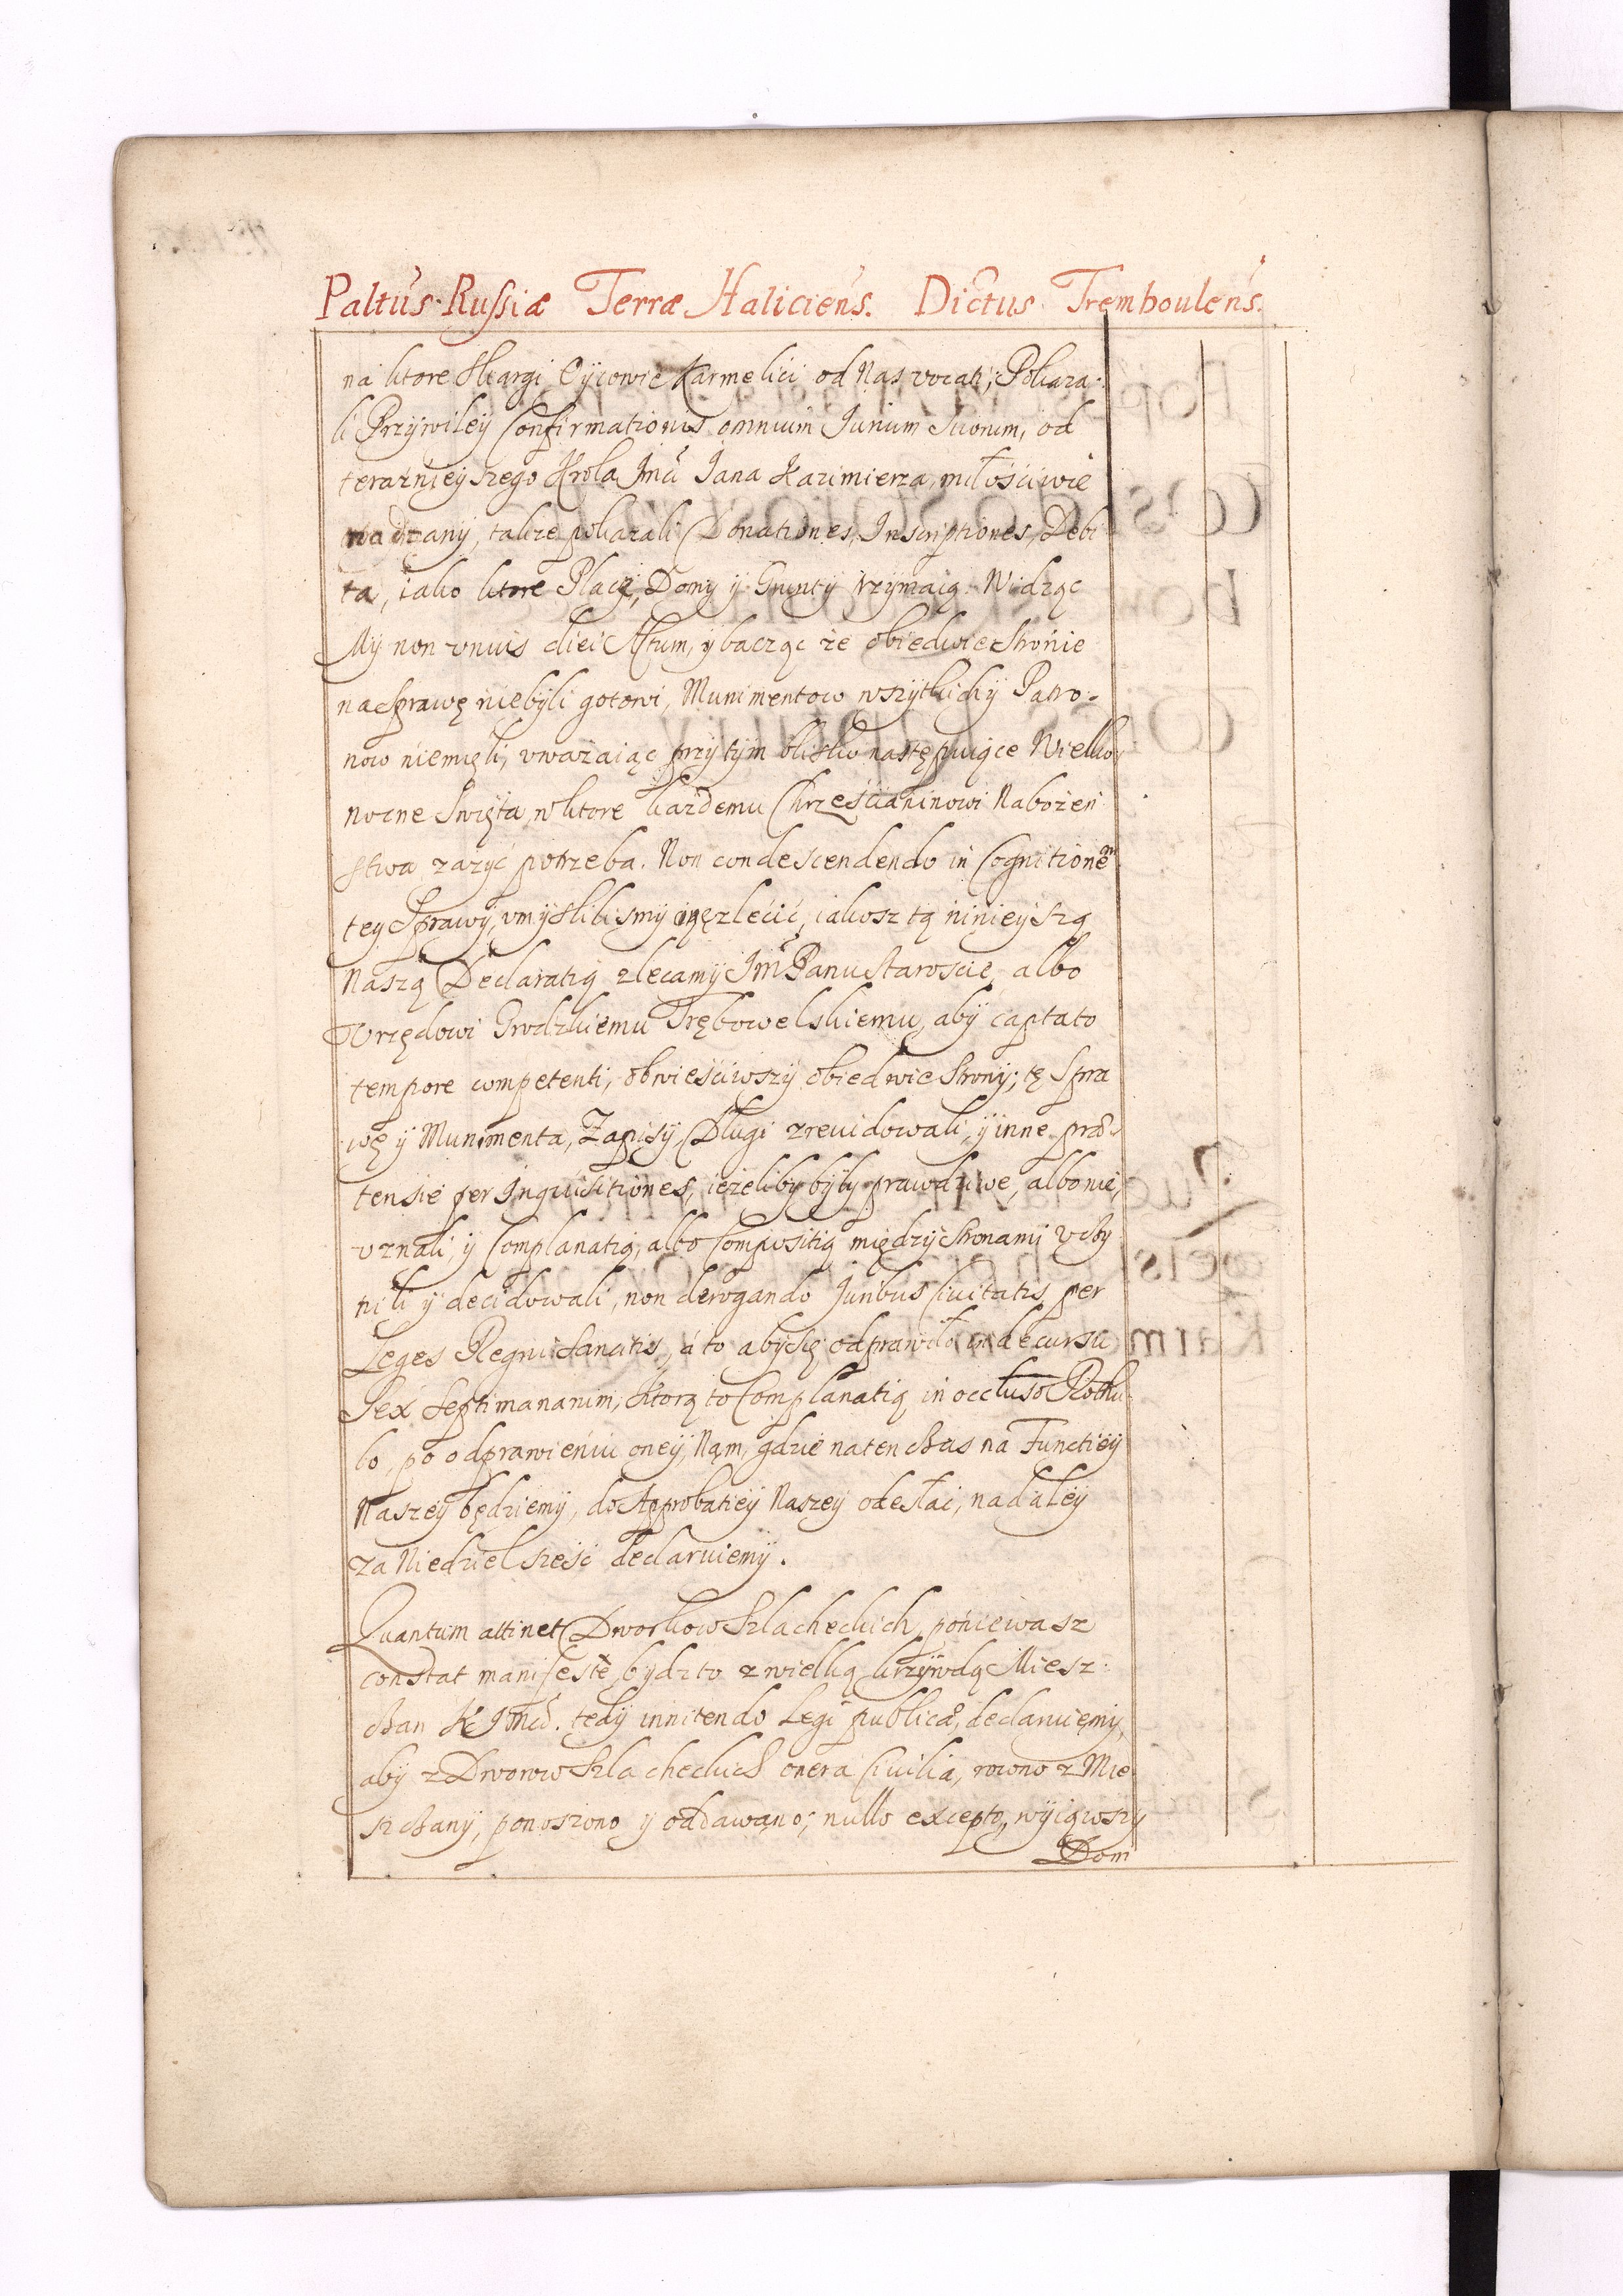 Paltus Russiæ Terræ Haliciens. Dictus Tremboulens.
na ktore skargi Oycowie Karmelici od Nas vocati, Pokaza-
li Przywiley Confirmationis omnium Jurium suorum, od
teraznieyszego Krola Jmci Jana Kazimierza, miłościwie
nadzany, takze pokazali Donationes, Inscriptiones, Debi
ta, iako ktore Place, Domy ÿ Grunty trzymaią. Widząc
My non vnius diei Actum, ÿ bacząc ze obiedwie stronie
na Sprawę niebyli gotowi, Munimentow wszytkich ÿ Patro-
now niemieli, vwazaiąc przytym blisko następuiące Wielko
nocne Swięta, w ktore kazdemu Chrześcianinowi Nabozeń
stwa zazyc potrzeba. Non condescendendo in Cognitionem
tey Sprawy, vmyslilismy ią zlecić, iakosz tą ninieyszą
Naszą Declaratią zlecamÿ Jmci Panu Staroscie, albo
Vrzędowi Grodzkiemu Trębowelskiemu, abÿ captato
tempore competenti, obwieściwszy obiedwie strony; tę Spra
wę ÿ Munimenta, Zapisy, Długi zrewidowali, ÿ inne præ-
tensie per Inquisitiones, iezeliby były prawdziwe, albo nie,
vznali, ÿ Complanatią, albo Compositią między stronami vczy
nili ÿ decidowali, non derogando Juribus Civitatis per
Leges Regni sancitis, a to aby się odprawiło in decursu
Sex septimanarum, ktorą to Complanatią in occluso Rothu
lo, po odprawieniu oneÿ, Nam, gdzie natenczas na Functieÿ
Naszeÿ będziemÿ, do Approbatieÿ Naszey odesłać, nadaley
za Niedziel sześć declaruiemÿ.
Quantum attinet Dworkow Szlacheckich, poniewasz
constat manifeste, bydz to z wielką krzywdą Miesz-
czan K Jmci. tedÿ innitendo Legi publicæ, declaruiemy,
abÿ z Dworow Szlacheckich onera Civilia, rowno z Mie
szczany, ponoszono ÿ oddawano; nullo excepto, wyiąwszy
Dom